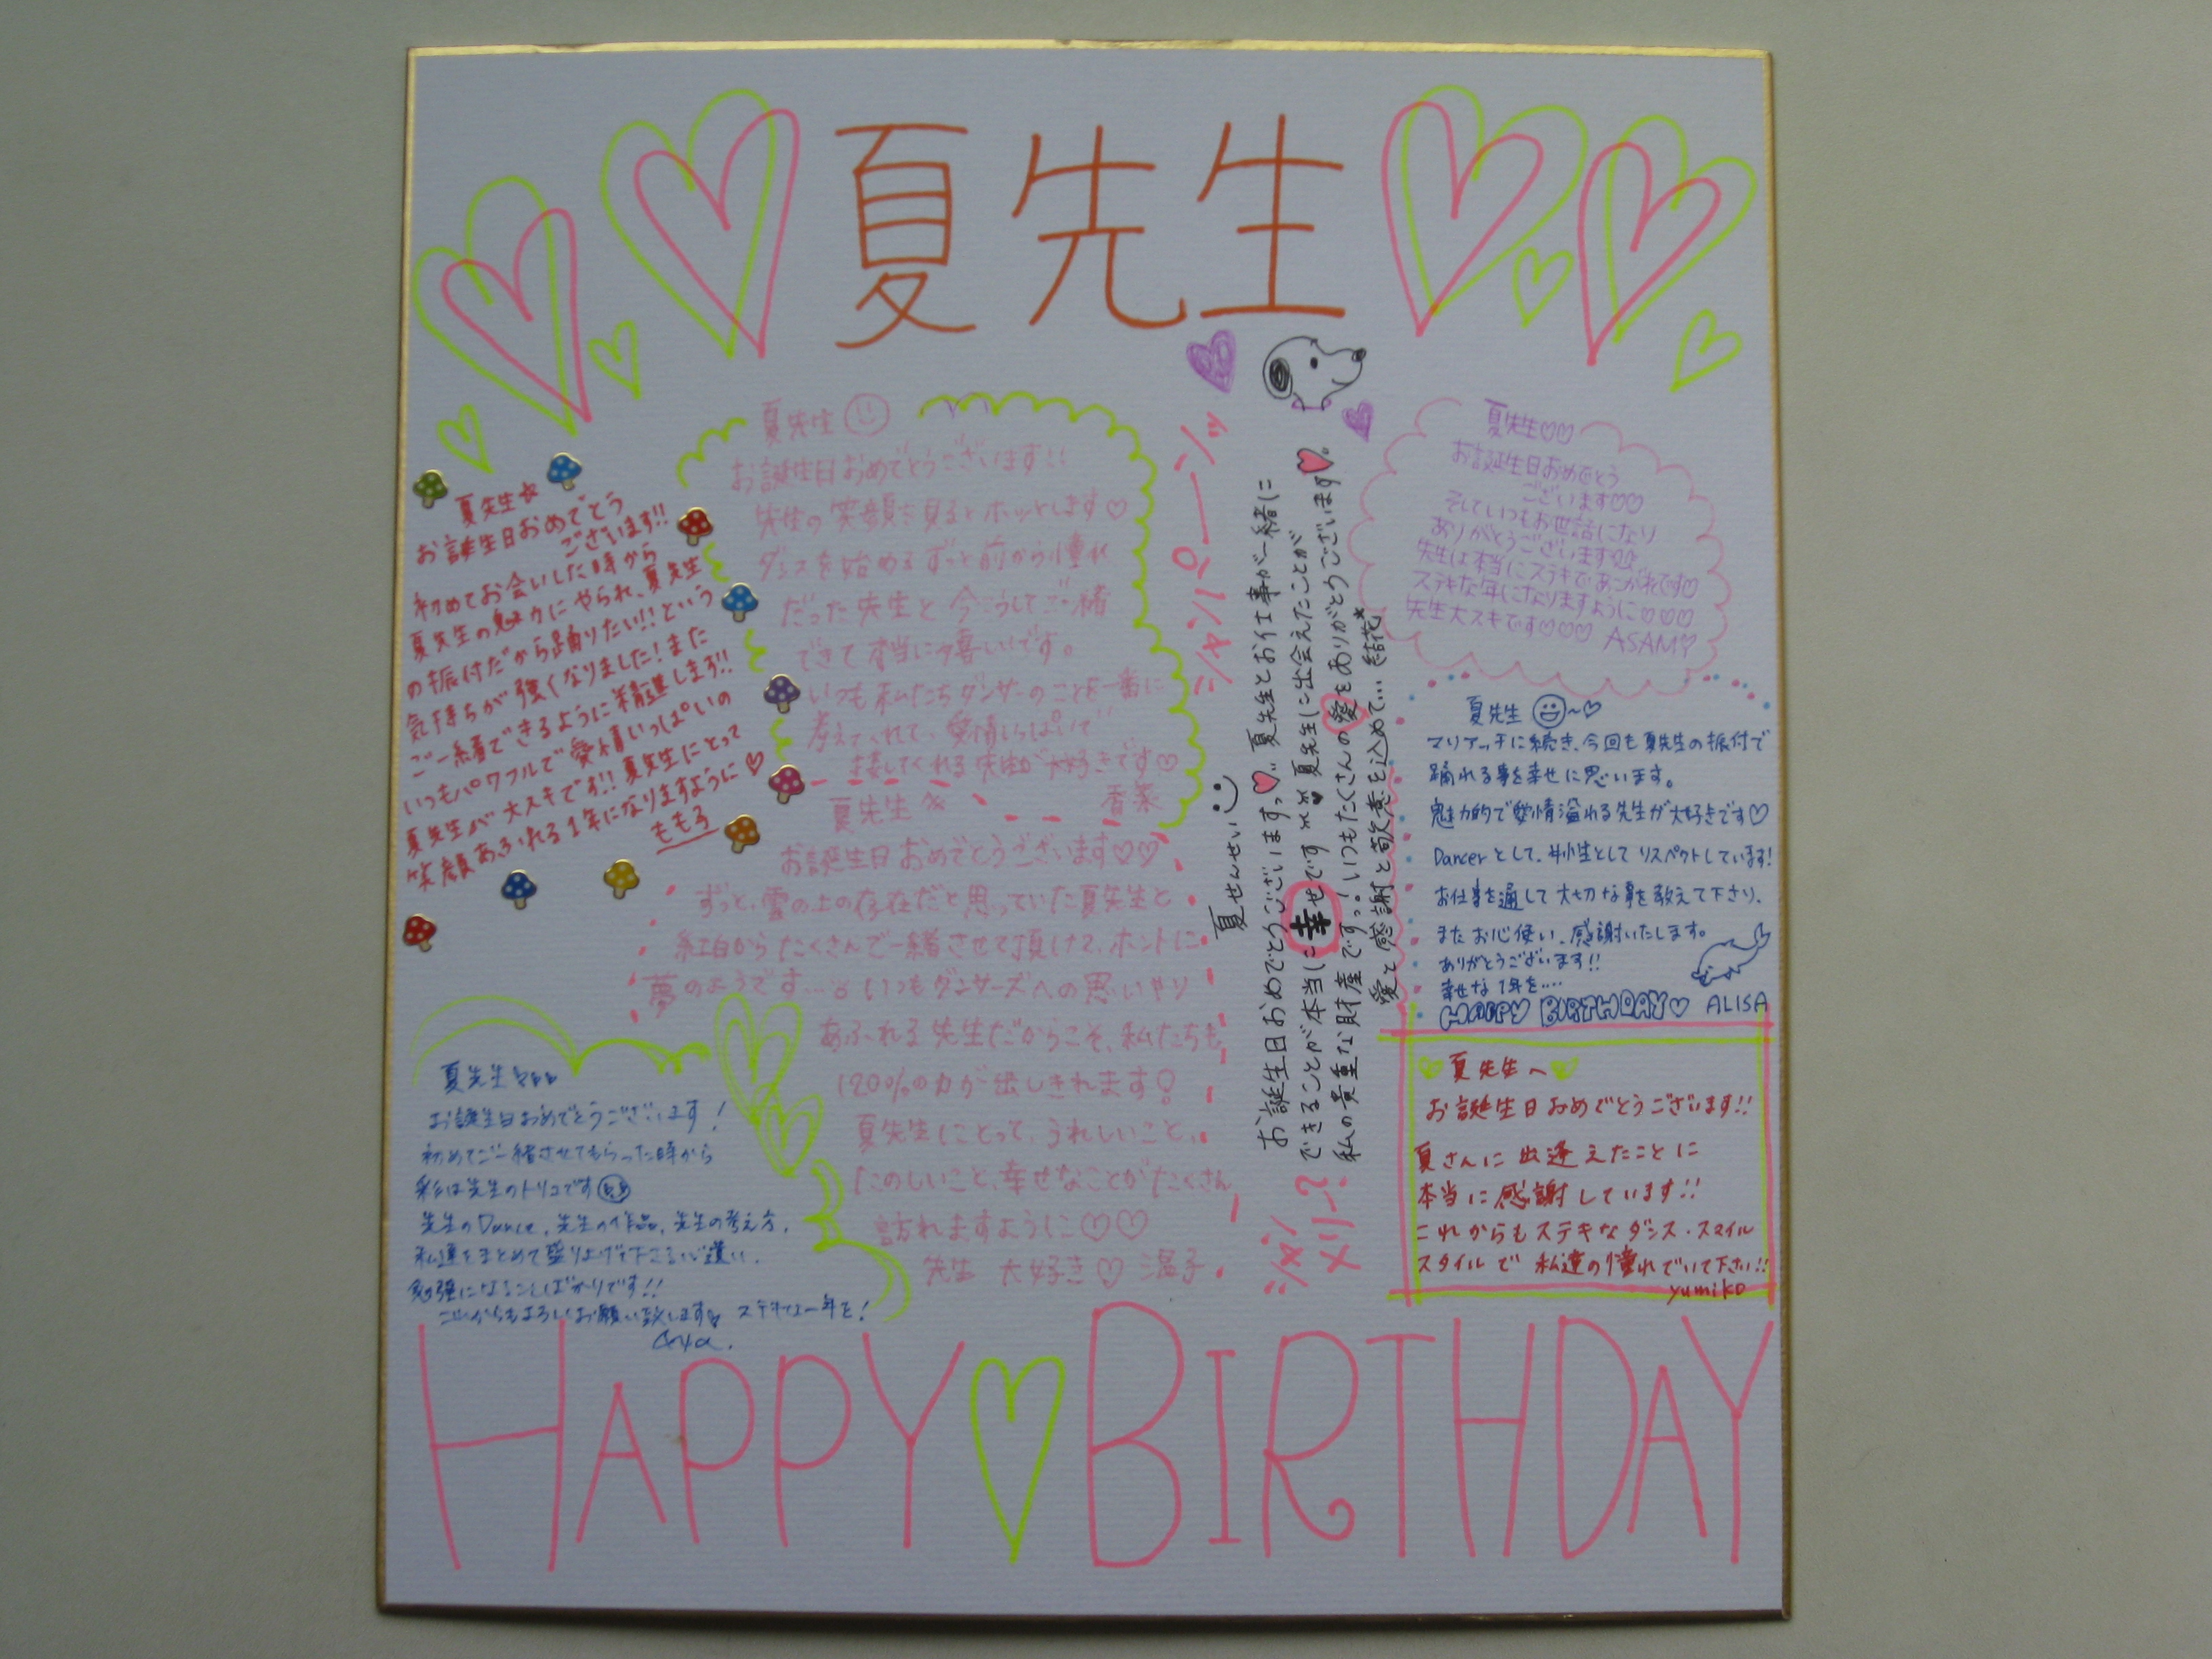 夏先生
夏先生☆
お誕生日おめでとう
ございます!!
初めてお会いした時から
夏先生の魅力にやられ、夏先生
の振付だから踊りたい!!という
気持ちが強くなりました!また
ご一緒できるように精進します!!
いつもパワフルで愛情いっぱいの
夏先生が大スキです!!夏先生にとって
笑顔あふれる1年になりますように♡
ももる
夏先生
お誕生日おめでとうございます!!
先生の笑顔を見るとホッとします♡
ダンスを始めるずっと前から憧れ
だった先生と今こうしてご一緒
できて本当に嬉しいです。
いつも私たちダンサーのことを一番に
考えてくれて、愛情いっぱいで
接してくれる先生が大好きです♡
香菜
夏先生
お誕生日おめでとうございます♡♡
ずっと、雲の上の存在だと思っていた夏先生と
紅白からたくさんご一緒させて頂けて、ホントに
夢のようです...。いつもダンサーズへの思いやり
あふれる先生だからこそ、私たちも
120%の力が出しきれます!
夏先生にとって、うれしいこと、
たのしいこと、幸せなことがたくさん
訪れますように♡♡
先生 大好き♡ 温子
シャンパーンッ
シャン
メリー?
夏せんせい
お誕生日おめでとうございますっ♥ 夏先生とお仕事が一緒に
できることが本当に幸せです 夏先生に出会えたことが
私の貴重な財産ですっ。!いつもたくさんの愛をありがとうございます♥
愛と感謝と敬意を込めて... 結花*
夏先生♡♡
お誕生日おめでとう
ございます♡♡
そしていつもお世話になり
ありがとうございます
先生は本当にステキであこがれです♡
ステキな年になりますように♡♡♡
先生大スキです♡♡♡ ASAMI
夏先生 ~♡
マリアッチに続き、今回も夏先生の振付で
踊れる事を幸せに思います。
魅力的で愛情溢れる先生が大好きです♡
Dancerとして、女性として リスペクトしています!
お仕事を通して 大切な事を教えて下さり、
またお心使い、感謝いたします。
ありがとうございます!!
幸せな1年を....
HAPPY BIRTHDAY♡ ALISA
夏先生へ
お誕生日おめでとうございます!!
夏さんに出逢えたことに
本当に感謝しています!!
これからもステキなダンス・スマイル
スタイルで 私達の憧れでいて下さい!!
yumiko
夏先生
お誕生日おめでとうございます!
初めてご一緒させてもらった時から
彩は先生のトリコです
先生のDance、先生の作品、先生の考え方、
私達をまとめて盛り上げて下さる心遣い、
勉強になることばかりです!!
これからもよろしくお願い致します ステキな一年を!
Aya.
HAPPY♡BIRTHDAY